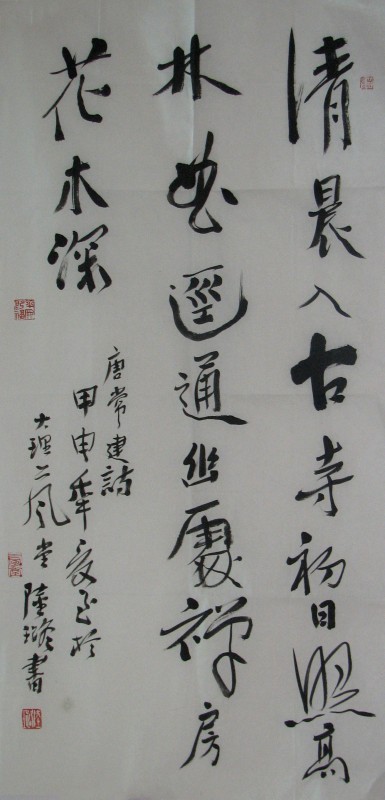 清晨入古寺初日照高
林曲逕通幽處禅房
花木深
唐常建詩
甲申年夏己於
大理二風堂陸
書